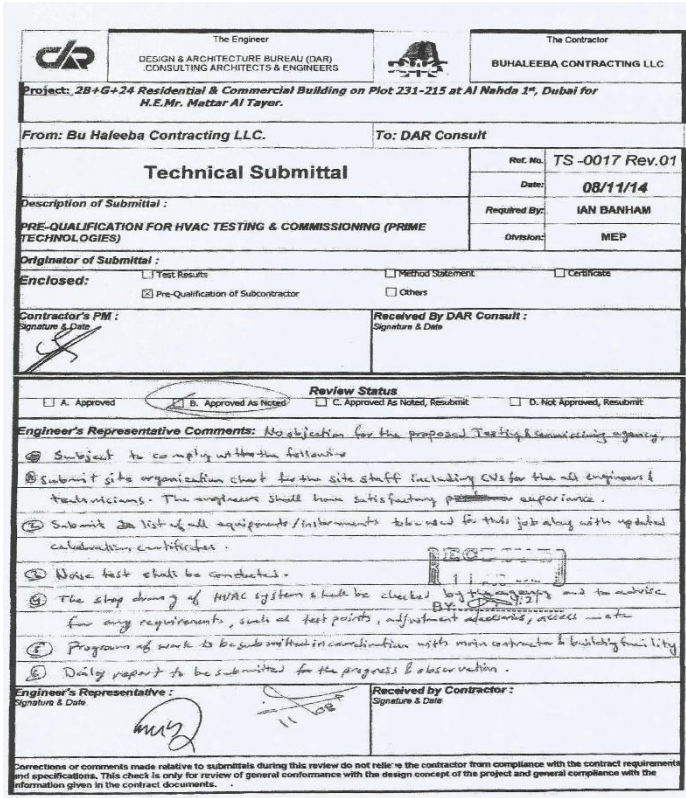 The Engineer
DESIGN & ARCHITECTURE BUREAU (DAR)
CONSULTING ARCHITECTS & ENGINEERS
The Contractor
BUHALEEBA CONTRACTING LLC
Project: 2B+G+24 Residential & Commercial Building on Plot 231-215 at Al Nahda 1st, Dubai for
H.E.Mr. Mattar Al Tayer.
From: Bu Haleeba Contracting LLC.
To: DAR Consult
Technical Submittal
Ref. No. TS -0017 Rev.01
Date: 08/11/14
Description of Submittal :
Required By: IAN BANHAM
PRE-QUALIFICATION FOR HVAC TESTING & COMMISSIONING (PRIME
TECHNOLOGIES)
Division: MEP
Originator of Submittal :
Enclosed:
Test Results
Method Statement
Certificate
Pre-Qualification of Subcontractor
Others
Contractor's PM :
Signature & Date
Received By DAR Consult :
Signature & Date
Review Status
A. Approved
B. Approved As Noted
C. Approved As Noted, Resubmit
D. Not Approved, Resubmit
Engineer's Representative Comments: No objection for the proposed Testing & commissioning agency,
Subject to comply with the following
Submit site organization chart for the site staff including CVs for the all engineers &
technicians. The engineers shall have satisfactory experience.
2 Submit list of all equipments/instruments to be used for this job along with updated
calibration certificates.
3 Noise test shall be conducted.
4 The shop drawing of HVAC system shall be checked by the agency and to advise
BY:
for any requirements, such as test points, adjustment, access - etc
5 Programs of work to be submitted in coordination with main contractor & building facility
6 Daily report to be submitted for the progress & observation.
Engineer's Representative :
Signature & Date
Received by Contractor :
Signature & Date
Corrections or comments made relative to submittals during this review do not relieve the contractor from compliance with the contract requirements
and specifications. This check is only for review of general conformance with the design concept of the project and general compliance with the
information given in the contract documents.